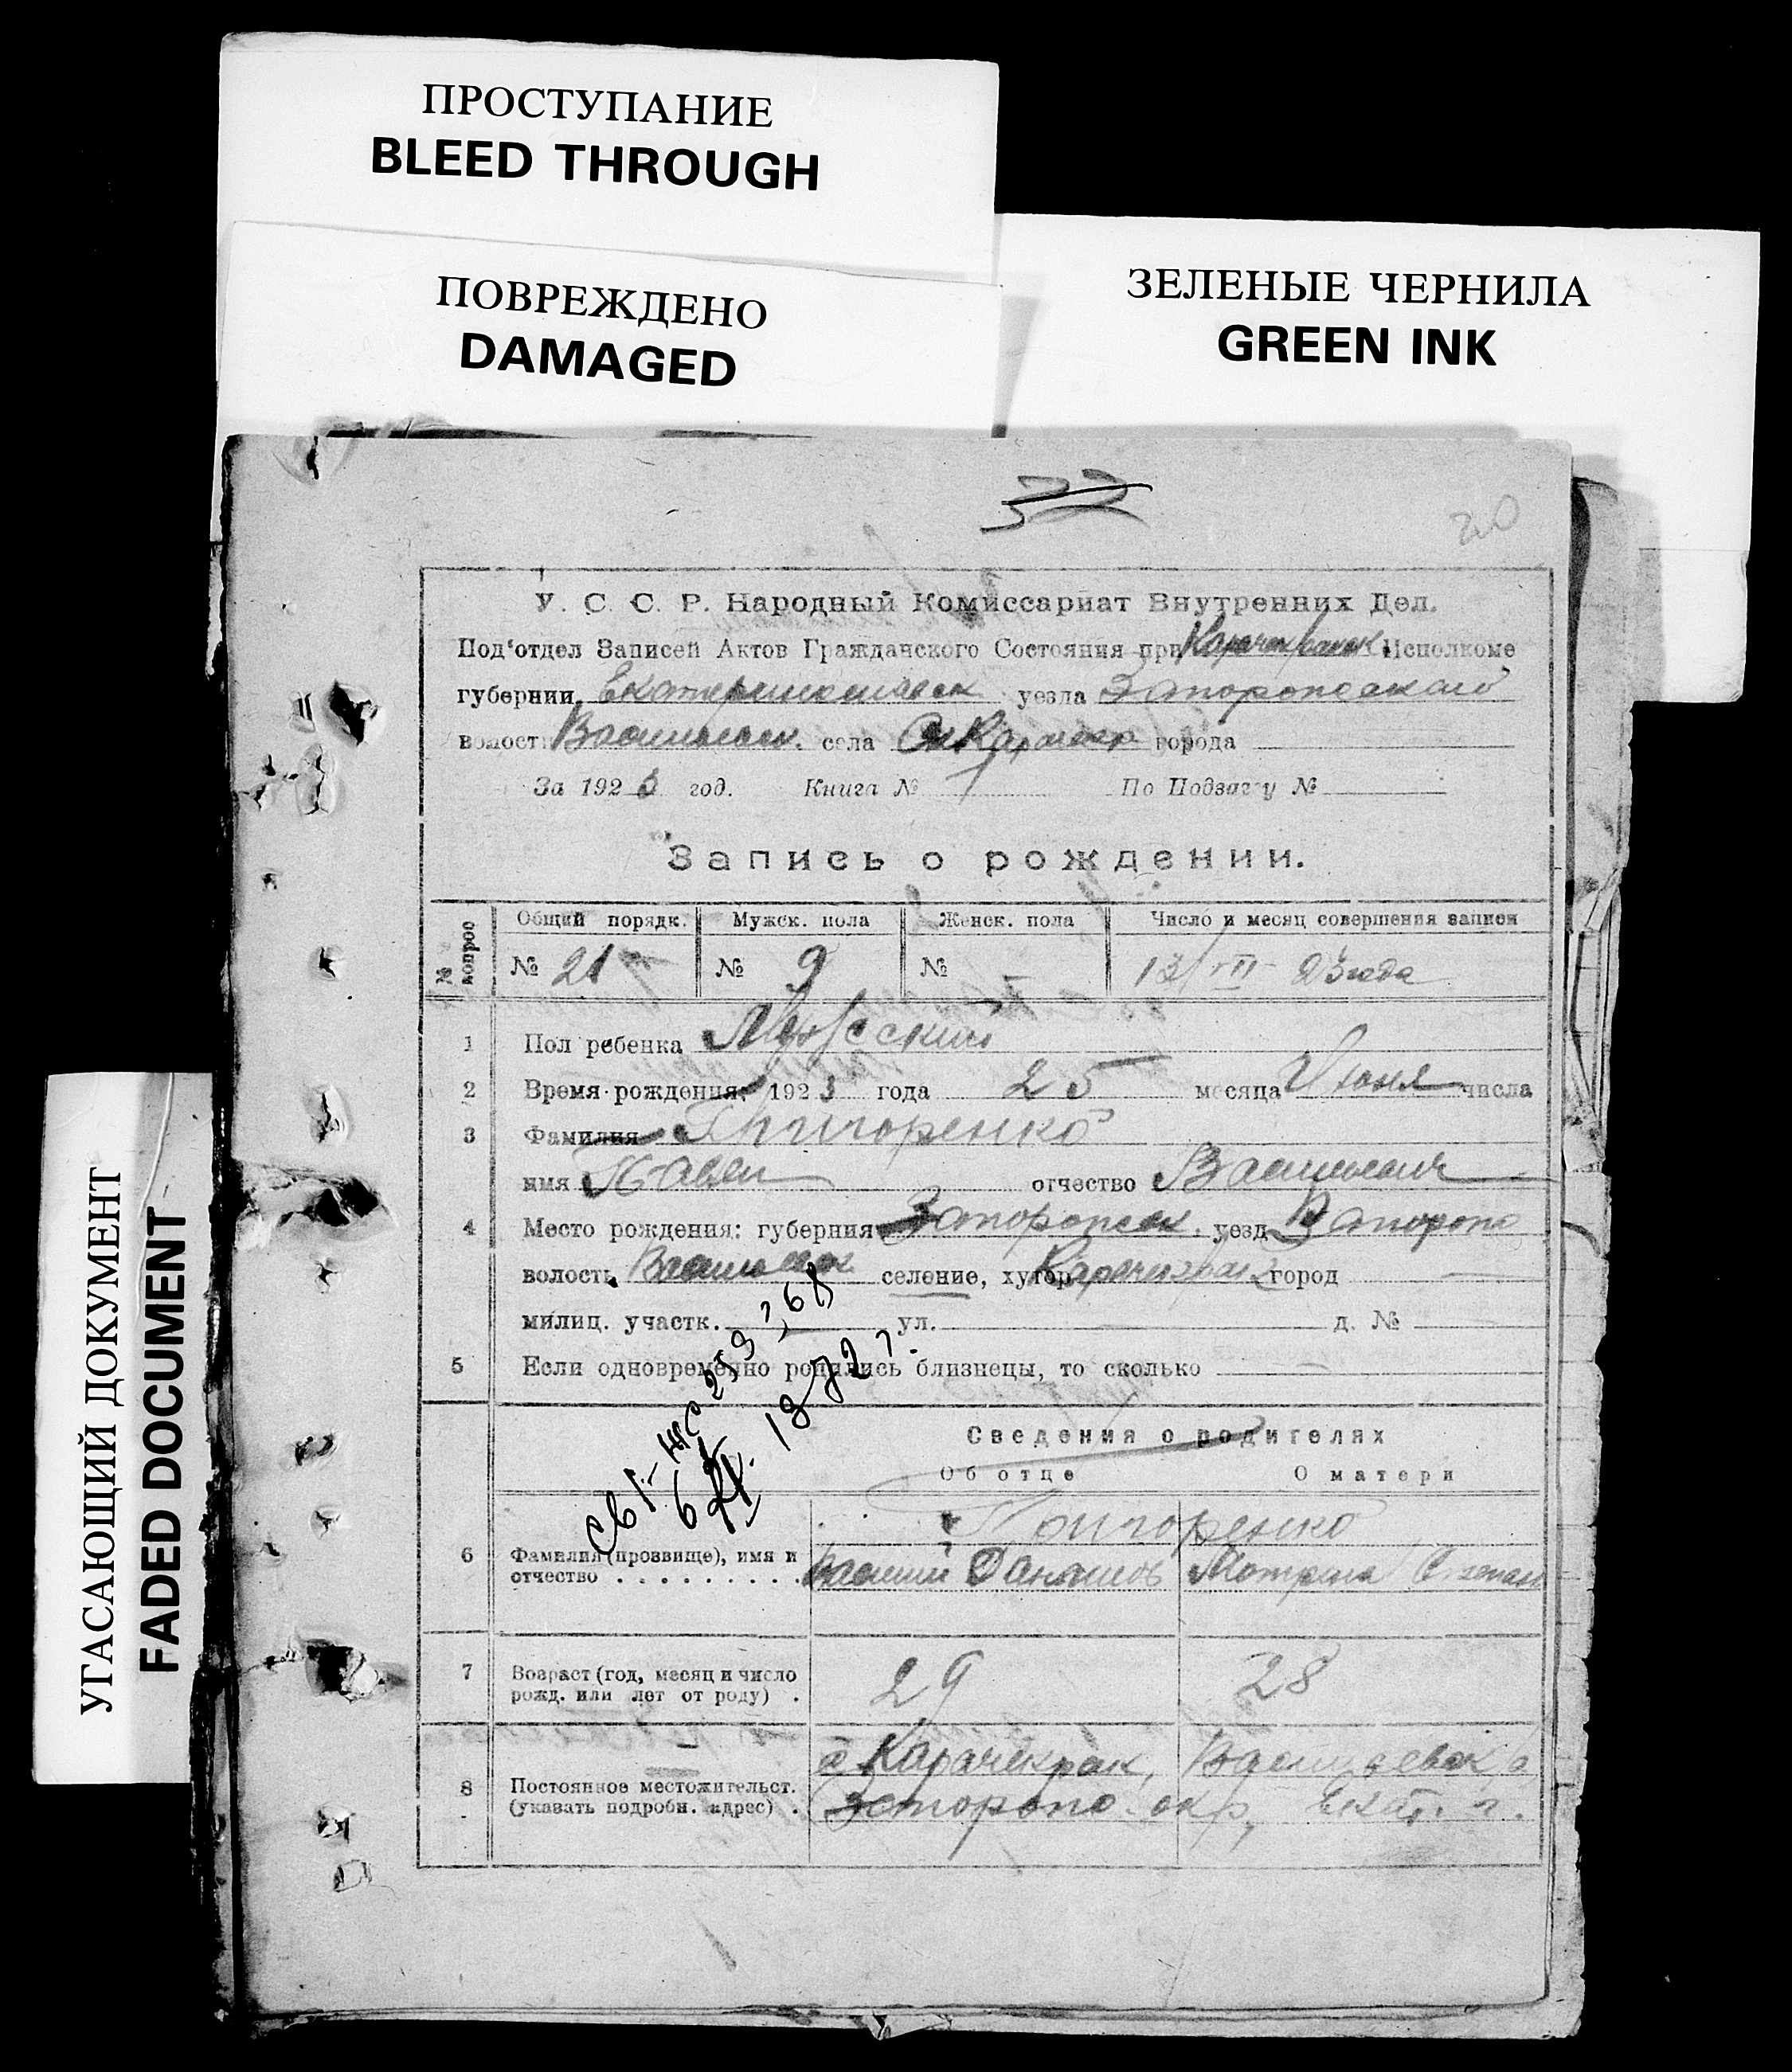 ПРОСТУПАНИЕ
BLEED THROUGH
ПОВРЕЖДЕНО
DAMAGED
ЗЕЛЕНЫЕ ЧЕРНИЛА
GREEN INK
УГАСАЮЩИЙ ДОКУМЕНТ
FADED DOCUMENT
32
20
У. С. С. Р. Народный Комиссариат Внутренних Дел.
Под'отдел Записей Актов Гражданского Состояния при Исполкоме
губернии Екатеринославск уезда
волости села города
За 1923 год. Книга № 1 По Подзагсу №
Запись о рождении.
№ вопрос Общий порядк. Мужск. пола Женск. пола Число и месяц совершения записи
№ 21 № 9 № 13/VII 23 года
1 Пол ребенка Мужеский
2 Время рождения: 1923 года 25 месяца Июня числа
3 Фамилия Григоренко
имя Павел отчество Васильевич
4 Место рождения: губерния уезд Запоропо
волость селение, хутор Карачекрак город
милиц. участк. ул. д. №
5 Если одновременно родились близнецы, то сколько
Сведения о родителях
Об отце О матери
Григоренко
6 Фамилия (прозвище), имя и отчество Василий Мотрина
7 Возраст (год, месяц и число рожд. или лет от роду) 29 28
8 Постоянное местожительст. (указать подробн. адрес) с Карачекрак, Васильевск
окр, Екат. г.